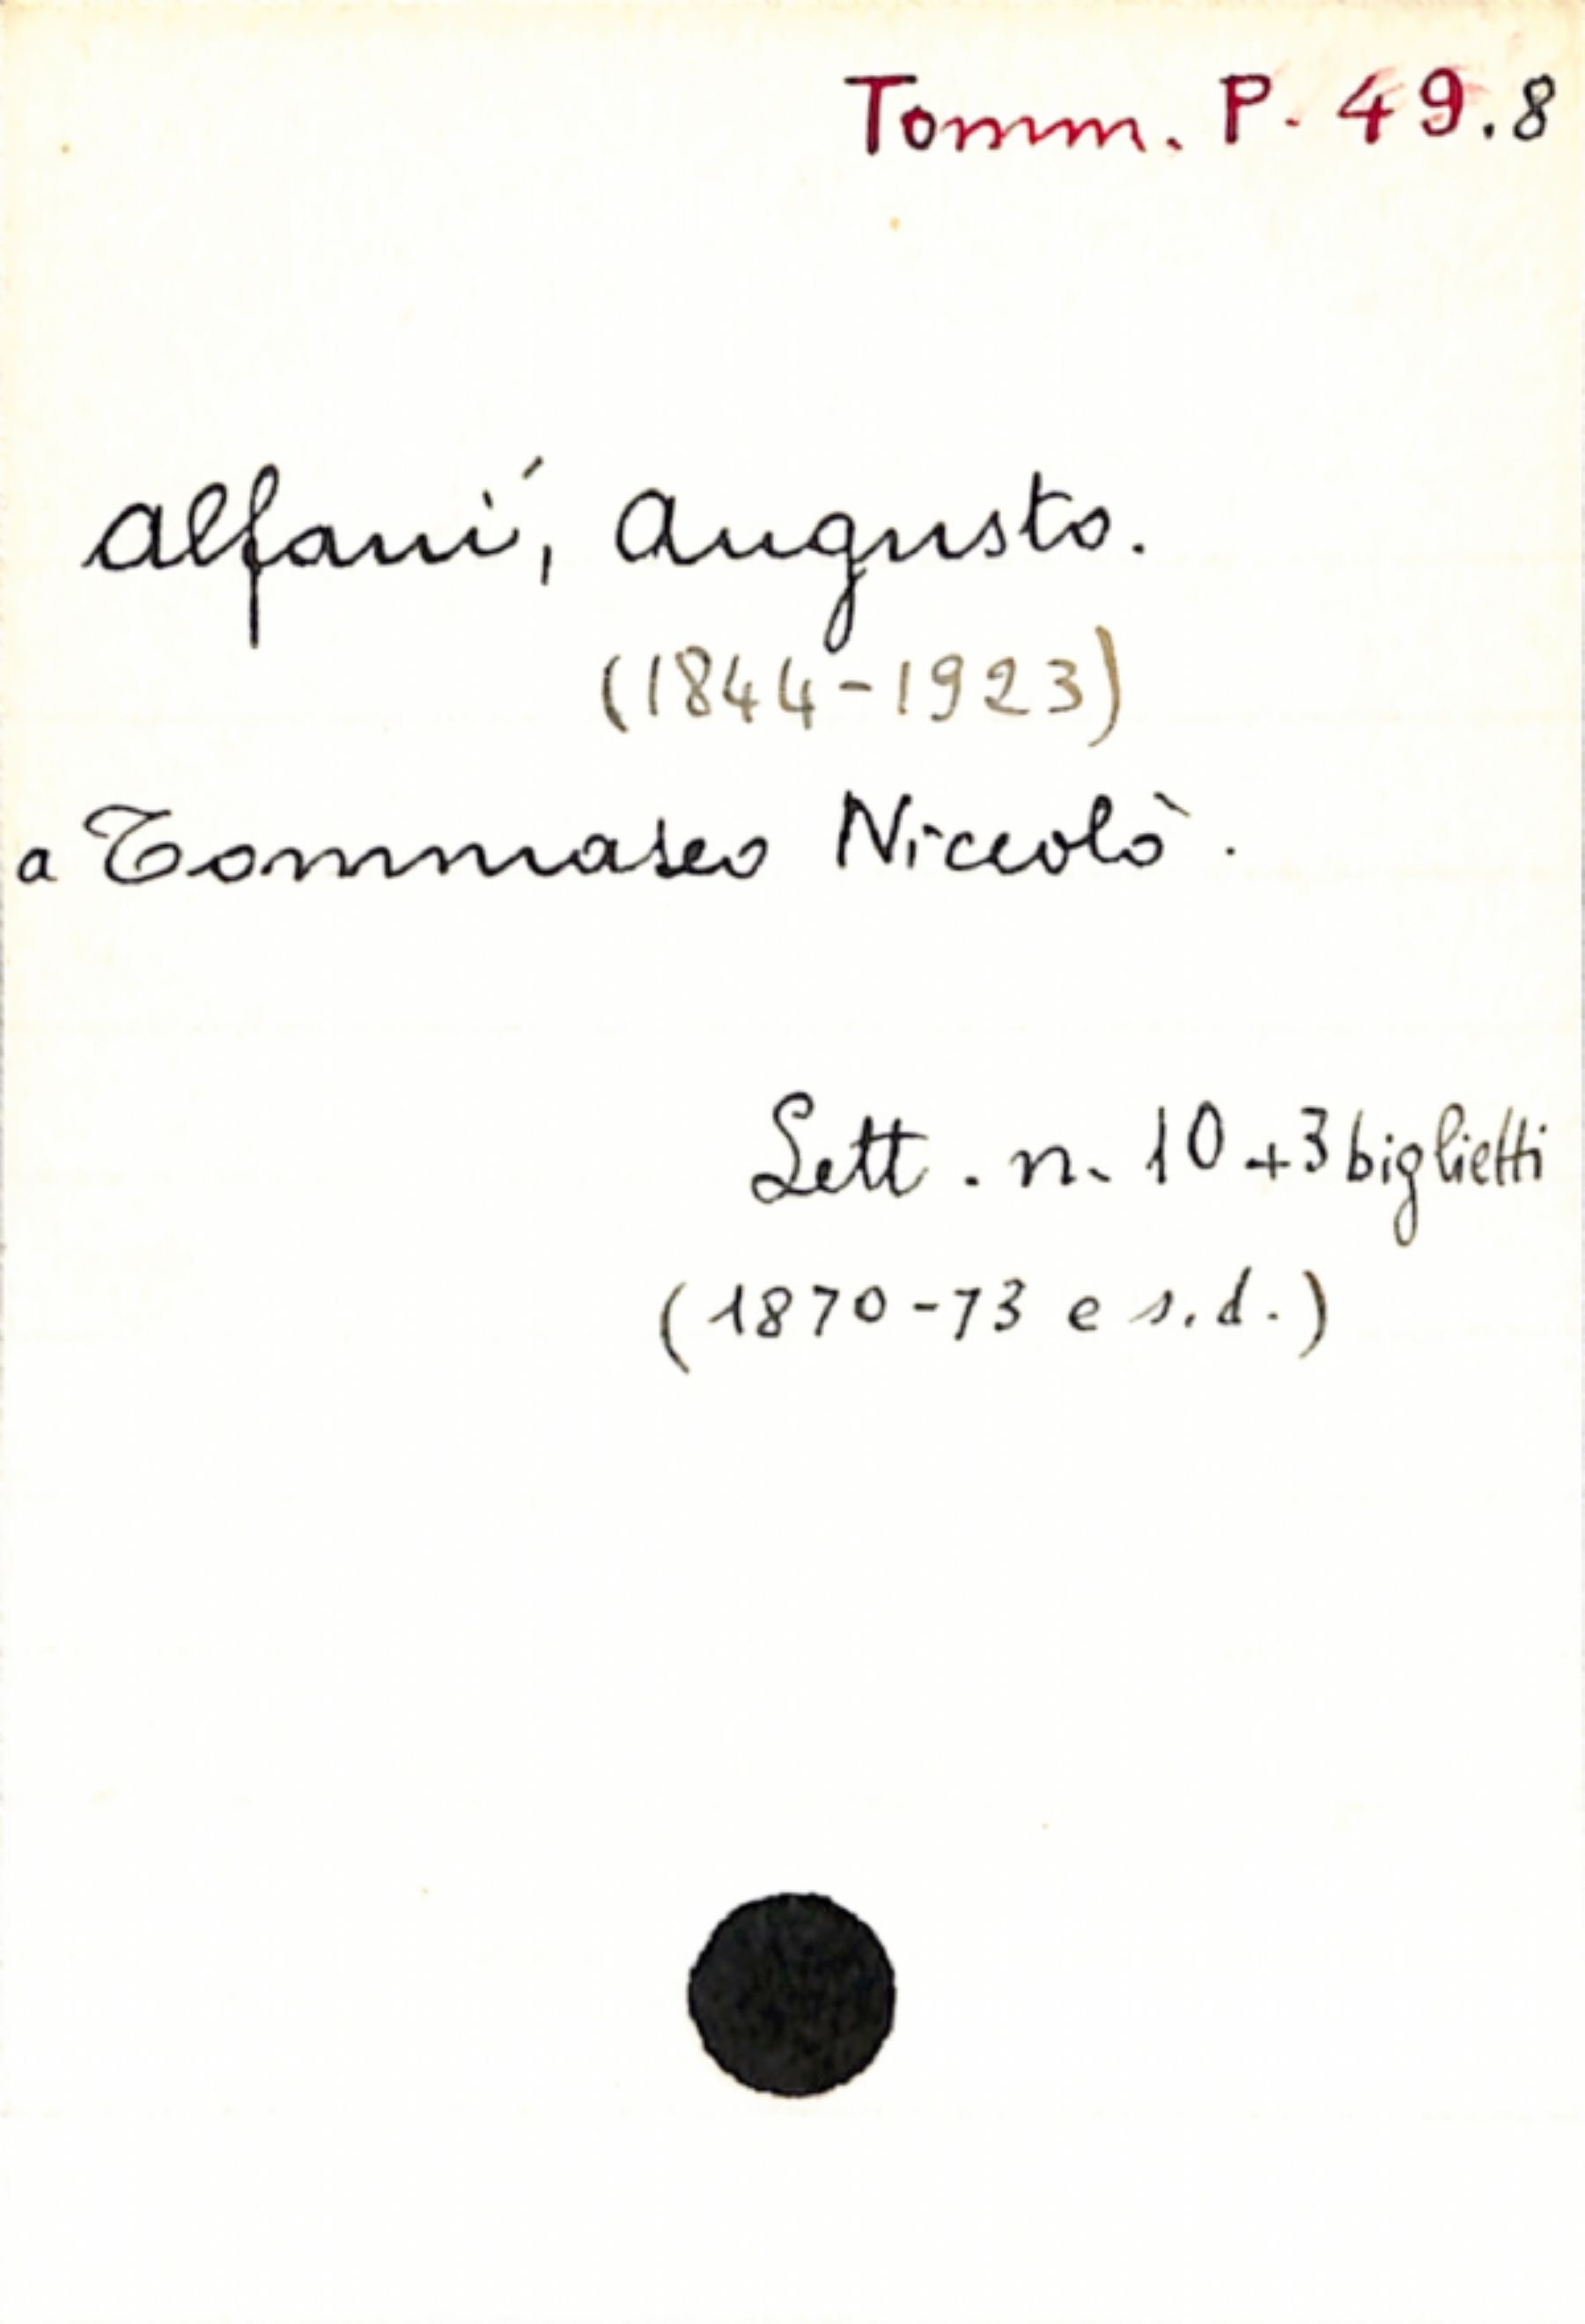 Tomm. P. 49.8
Alfani, Augusto.
(1844-1923)
a Tommaseo Niccolò.
Lett. n. 10 +3 biglietti
(1870-73 e s.d.)